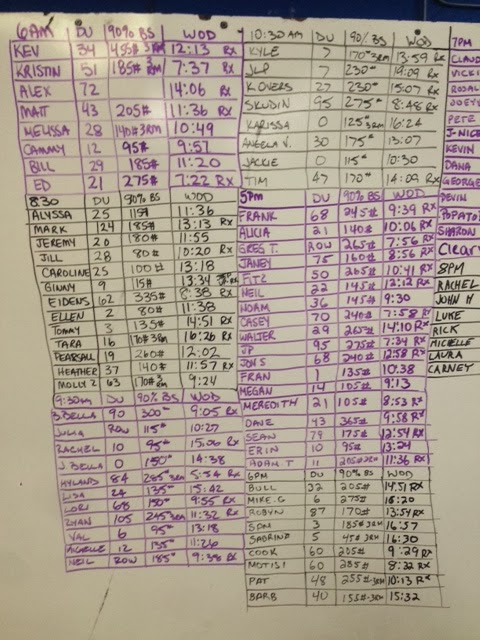 6AM DU 90% BS WOD
KEV 34 455# 3RM 12:13 Rx
KRISTIN 51 185# 3RM 7:37 Rx
ALEX 72 14:06 Rx
MATT 43 205# 11:36 Rx
MELYSSA 28 140# 3RM 10:49
CAMMY 12 95# 9:57
BILL 29 185# 11:20
ED 21 275# 7:22 Rx
8:30 DU 90% BS WOD
ALYSSA 25 115# 11:36
MARK 124 185# 13:13 Rx
JEREMY 20 180# 11:55
JILL 28 80# 10:20 Rx
CAROLINE 25 100# 13:18
GINNY 9 15# 13:34
EIDENS 102 335# 8:38 Rx
ELLEN 2 80# 11:38
TOMMY 3 135# 14:51 Rx
TARA 16 170# 3RM 16:26 Rx
PEARSALL 19 260# 12:02
HEATHER 37 140# 11:57 Rx
MOLLY Z 63 170# 3RM 9:24
9:30am DU 90% BS WOD
B.BELLA 90 300# 9:05 Rx
JULIA ROW 115# 10:27
RACHEL 10 95# 15:00 Rx
J BELLA 0 150# 14:38
HYLANDS 84 285# 3RM 5:54 Rx
LISA 24 135# 15:42
LORI 68 150# 9:55 Rx
RYAN 105 245# 3RM 11:32 Rx
VAL 6 95# 13:18
MICHELLE 12 135# 11:26
NEIL ROW 185# 9:38 Rx
10:30 AM DU 90% BS WOD
KYLE 7 170# 3RM 13:59 Rx
JLP 7 230# 19:09 Rx
K OVERS 27 230# 15:07 Rx
SKUDIN 95 275# 8:48 Rx
KARISSA 0 125# 3RM 16:24
ANGELA V. 30 175# 13:07
JACKIE 0 115# 10:30
TIM 47 170# 14:09 Rx
5pm DU 90% BS WOD
FRANK 68 245# 9:39 Rx
ALICIA 21 140# 10:06 Rx
GREG T. ROW 265# 7:56 Rx
JANBY 75 160# 8:56 Rx
FITZ 50 265# 10:41 Rx
NEIL 22 145# 12:12 Rx
NOAM 36 145# 9:30
CASEY 70 240# 7:58 Rx
WALTER 29 265# 14:10 Rx
JP 95 275# 7:34 Rx
JON S 68 240# 12:58 Rx
FRAN 1 135# 10:38
MEGAN 14 105# 9:13
MEREDITH 21 105# 8:53 Rx
DANE 43 365# 9:58 Rx
SEAN 79 175# 12:54 Rx
ERIN 10 95# 13:24
ADAM T 11 205# 3RM 11:36 Rx
6PM DU 90% BS WOD
BULL 32 205# 14:51 Rx
MIKE.G 6 275# 16:20
ROBYN 87 170# 13:54 Rx
3 185# 3RM 16:57
SABRINA 5 45# 3RM 16:30
COOK 60 205# 9:29 Rx
MOTISI 60 285# 8:32 Rx
PAT 48 255# 3RM 10:13 Rx
BARB 40 155# 3RM 15:32
7PM
CLAUD
VICKI
ROSAL
JOEY
PETE
J-NICE
KEVIN
DANA
GEORGE
DEVIN
POPATO
SHARON
8PM
RACHEL
JOHN H
LUKE
RICK
MICELLE
LAURA
CARNEY